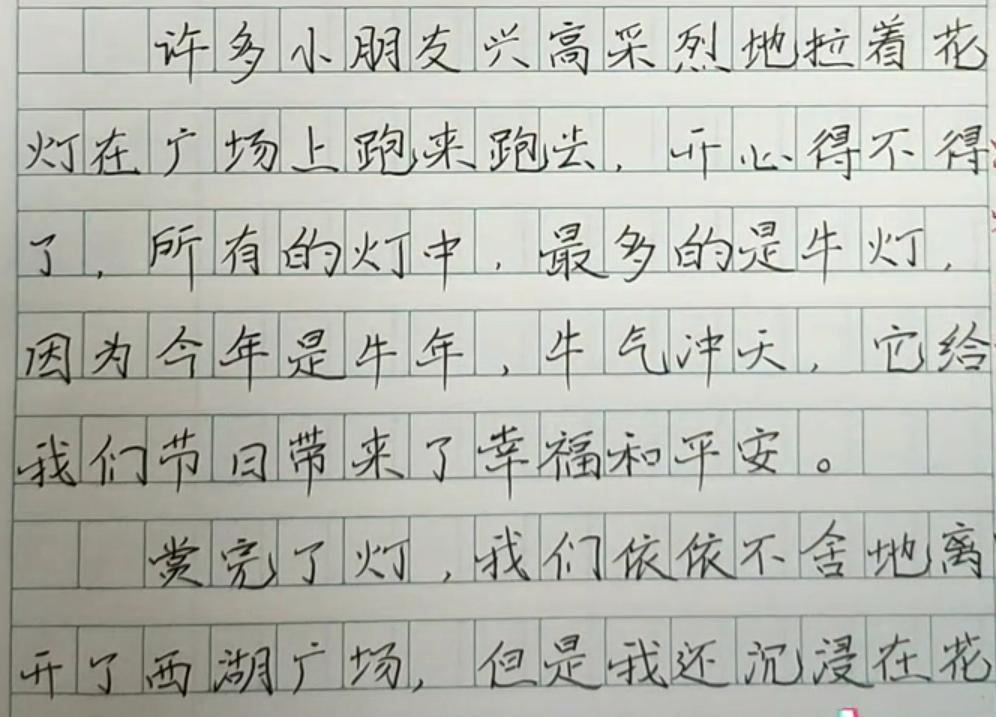 许多小朋友兴高采烈地拉着花
灯在广场上跑来跑去，开心得不得
了，所有的灯中，最多的是牛灯，
因为今年是牛年，牛气冲天，它给
我们节日带来了幸福和平安。
赏完了灯，我们依依不舍地离
开了西湖广场，但是我还沉浸在花